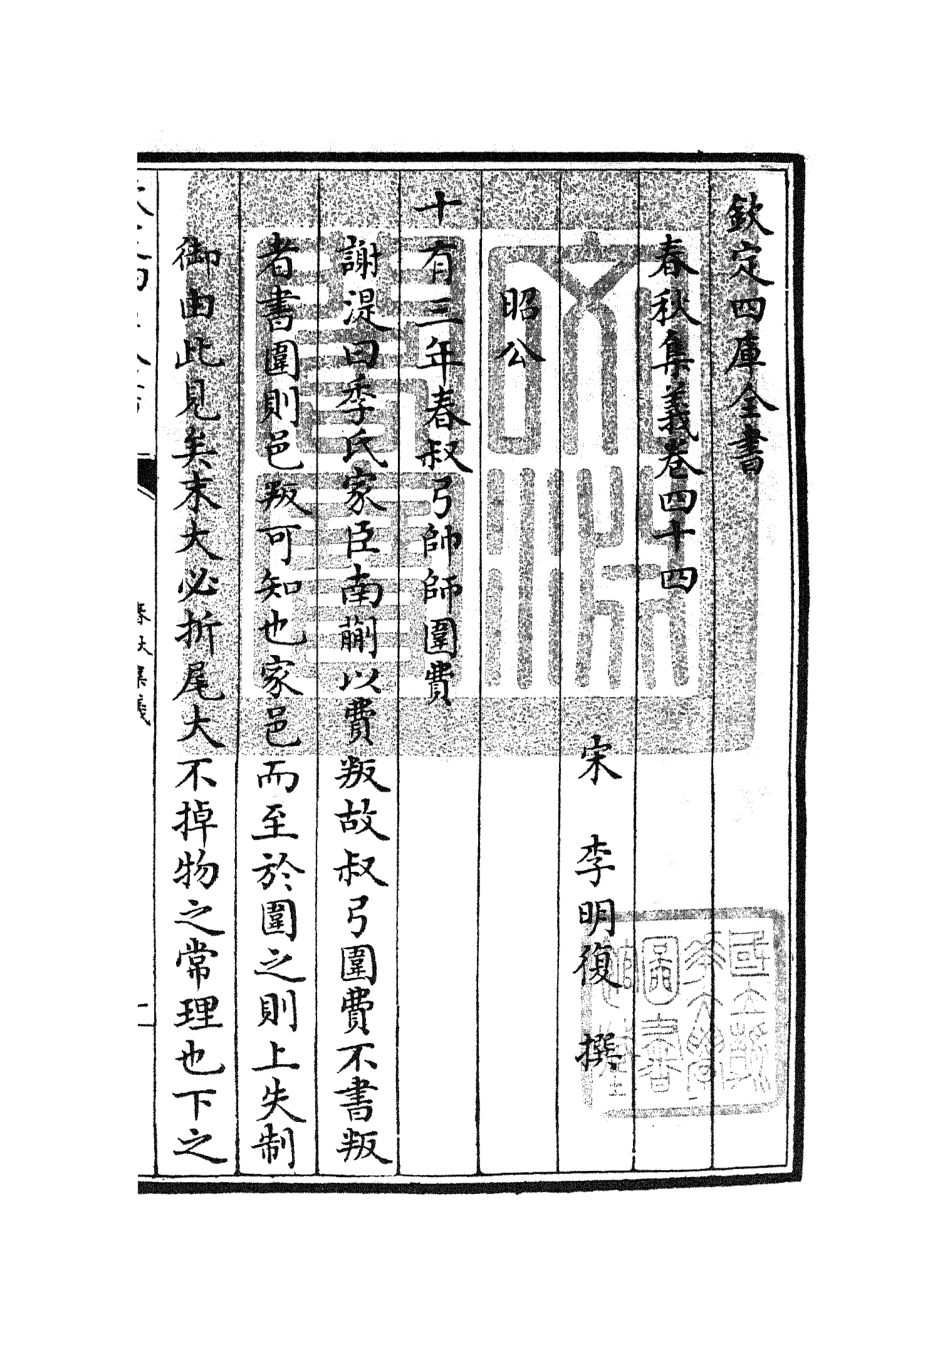 欽定四庫全書
春秋集義卷四十四
宋 李明復 撰
昭公
十有三年春叔弓帥師圍費
謝湜曰季氏家臣南蒯以費叛故叔弓圍費不書叛
者書圍則邑叛可知也家邑而至於圍之則上失制
御由此見矣末大必折尾大不掉物之常理也下之
春秋集義
一